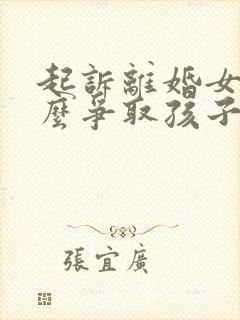 起訴離婚女
麼爭取孩子
張宜廣